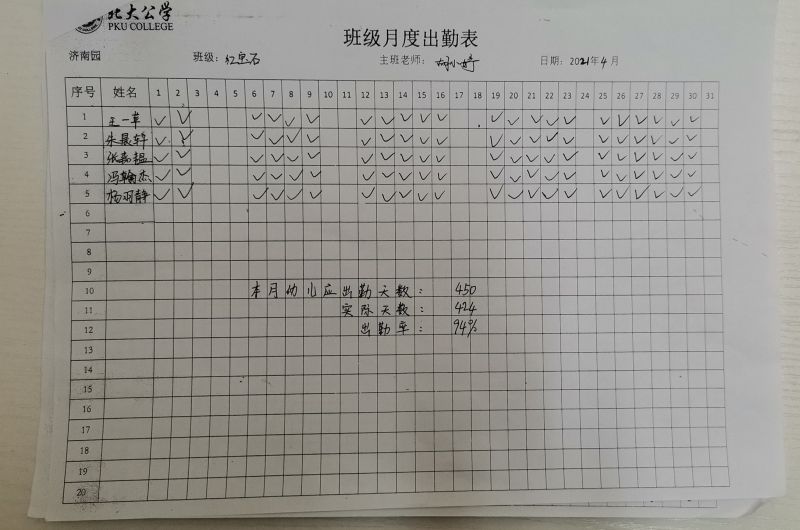 北大公学
PKU COLLEGE
班级月度出勤表
济南园 班级：红宝石 主班老师： 日期：2021年4月
序号 姓名 1 2 3 4 5 6 7 8 9 10 11 12 13 14 15 16 17 18 19 20 21 22 23 24 25 26 27 28 29 30 31
1 王一苇 ✓ ✓ ✓ ✓ ✓ ✓ ✓ ✓ ✓ ✓ ✓ ✓ ✓ ✓ ✓ ✓ ✓ ✓ ✓ ✓ ✓ ✓
2 朱晨轩 ✓ ✓ ✓ ✓ ✓ ✓ ✓ ✓ ✓ ✓ ✓ ✓ ✓ ✓ ✓ ✓ ✓ ✓ ✓ ✓ ✓ ✓
3 张嘉韫 ✓ ✓ ✓ ✓ ✓ ✓ ✓ ✓ ✓ ✓ ✓ ✓ ✓ ✓ ✓ ✓ ✓ ✓ ✓ ✓ ✓ ✓
4 冯翰杰 ✓ ✓ ✓ ✓ ✓ ✓ ✓ ✓ ✓ ✓ ✓ ✓ ✓ ✓ ✓ ✓ ✓ ✓ ✓ ✓ ✓ ✓
5 杨羽静 ✓ ✓ ✓ ✓ ✓ ✓ ✓ ✓ ✓ ✓ ✓ ✓ ✓ ✓ ✓ ✓ ✓ ✓ ✓ ✓ ✓ ✓
6
7
8
9
10 本月幼儿应出勤天数： 450
11 实际天数： 424
12 出勤率： 94%
13
14
15
16
17
18
19
20